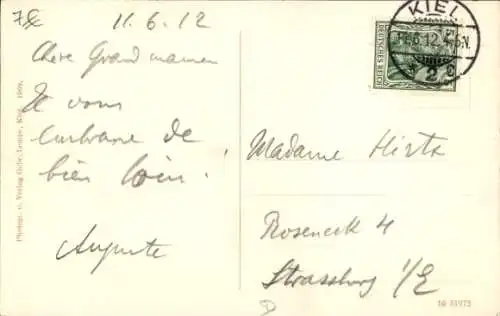 11.6.12
Chere Grand maman
Je vous
embrasse de
bien loin!
Auguste
KIEL
11.6.12
DEUTSCHES REICH
Madame Hirtz
Roseneck 4
Strassburg i/E
Photogr. u. Verlag Gebr. Lempe, Kiel. 1909.